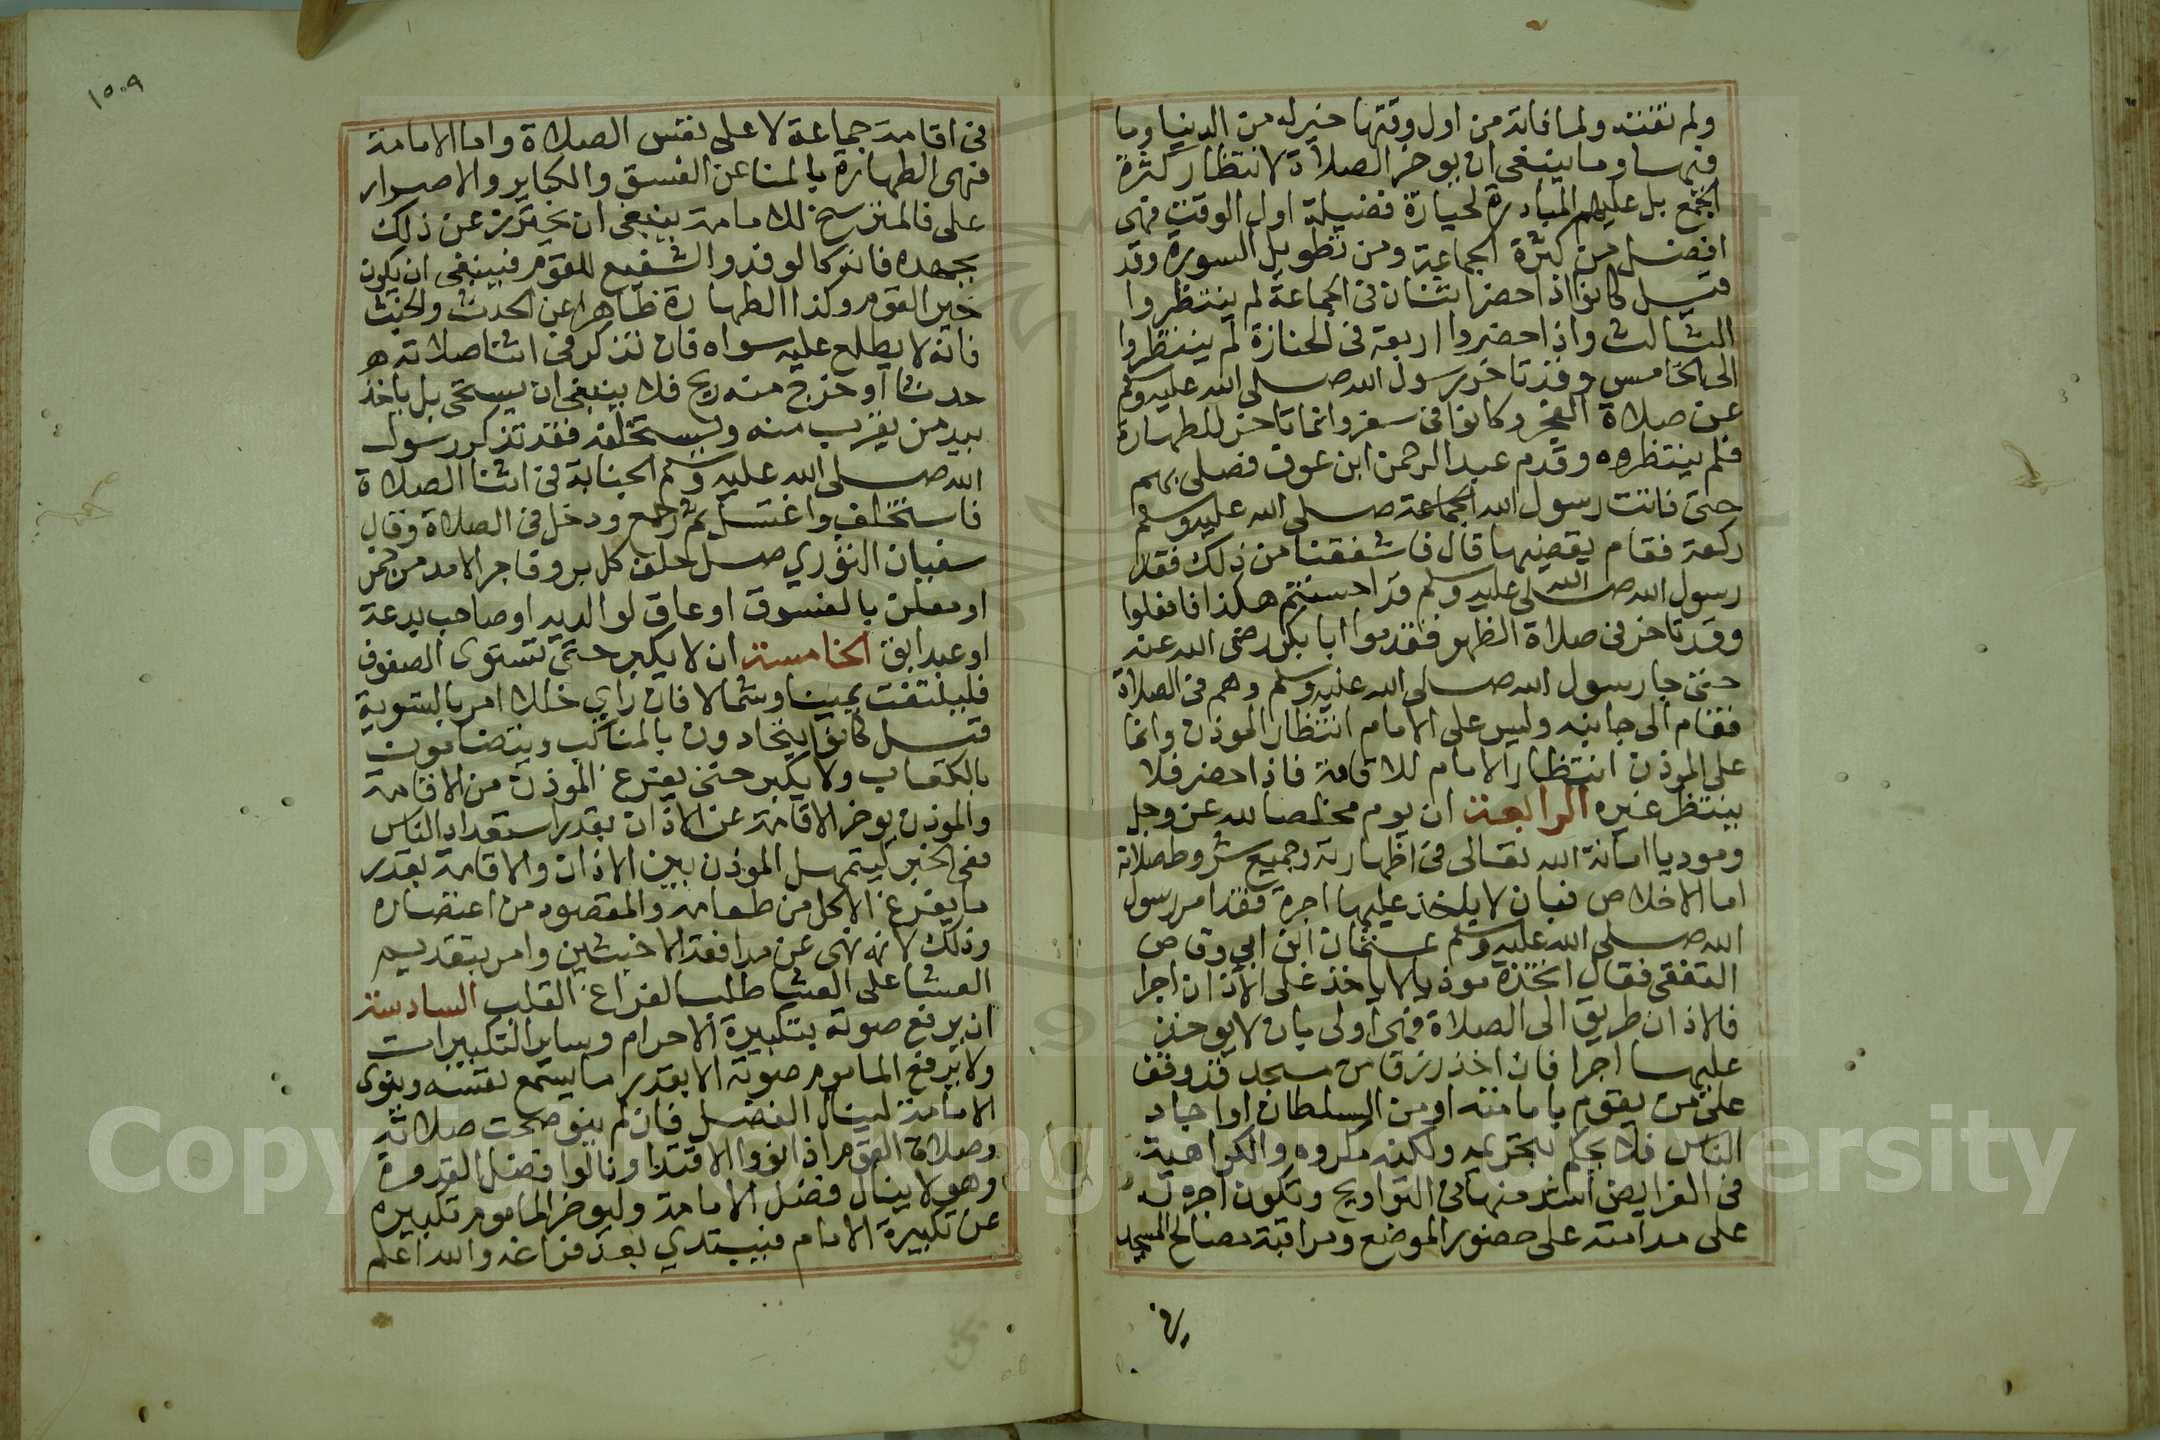 ولم تفته ولما فاته من اول وقتها خير له من الدنيا وما
فيها وما ينبغي ان يوخر الصلاة لانتظار كثرة
الجمع بل عليهم المبادرة لحيازة فضيلة اول الوقت فهى
افضل من كثرة الجماعة ومن تطويل السورة وقد
قيل كانوا اذا حضر اثنان فى الجماعة لم ينتظروا
الثالث واذا حضروا اربعة فى الجنازة لم ينتظروا
الى الخامس وقد تاخر رسول الله صلى الله عليه وسلم
عن صلاة الفجر وكانوا فى سفر وانما تاخر للطهارة
فلم ينتظروه وقدم عبد الرحمن ابن عوف فصلى بهم
حتى فاتت رسول الله الجماعة صلى الله عليه وسلم
ركعة فقام يقضيها قال فاشفقنا من ذلك فقال
رسول الله صلى الله عليه وسلم قد احسنتم هكذا فافعلوا
وقد تاخر فى صلاة الظهر فقدموا ابا بكر رضى الله عنه
حتى جا رسول الله صلى الله عليه وسلم وهم فى الصلاة
فقام الى جانبه وليس على الامام انتظار الموذن وانما
على الموذن انتظار الامام للاقامة فاذا حضر فلا
ينتظر غيره الرابعة ان يوم مخلصا لله عز وجل
وموديا امانة الله تعالى فى اظهارته وجميع شروط صلاته
اما الاخلاص فبان لا ياخذ عليها اجرة فقد امر رسول
الله صلى الله عليه وسلم عثمان ابن ابى وقاص
الثقفى فقال اتخذه موذنا لا ياخذ على الاذان اجرا
فالاذان طريق الى الصلاة فهى اولى بان لا يوخذ
عليها اجرا فان اخذ رزقا من مسجد قد وقف
على من يقوم بامامته او من السلطان او احاد
الناس فلا يحكم بتحريمه ولكنه مكروه والكراهية
فى الفرايض اشد منها فى التراويح وتكون اجره له
على مداومته على حضور الموضع ومراقبة مصالح المسجد
١٥٠٩
فى اقامة جماعة لا على نفس الصلاة واما الامامة
فهى الطهارة بالمنا عن الفسق والكباير والاصرار
على فالمترسح للامامة ينبغى ان يحترز عن ذلك
بجهده فانه كالوفد والشفيع للقوم فينبغى ان يكون
خير القوم وكذا الطهارة ظاهرا عن الحدث والخبث
فانه لا يطلع عليه سواه فان تذكر فى اثنا صلاته
حدثا او خرج منه ريح فلا ينبغى ان يستحى بل ياخذ
بيد من يقرب منه ويستخلفه فقد تذكر رسول
الله صلى الله عليه وسلم الجنابة فى اثنا الصلاة
فاستخلف واغتسل ثم رجع ودخل فى الصلاة وقال
سفيان الثوري صل خلف كل بر وفاجر الا مدمن خمر
او معلن بالفسوق او عاق لوالديه او صاحب بدعة
او عبد ابق الخامسة ان لا يكبر حتى تستوى الصفوف
فليلتفت يمينا وشمالا فان راي خللا امر بالتسوية
قيل كانوا يتحادون بالمناكب ويتضامون
بالكعاب ولا يكبر حتى يفرغ الموذن من الاقامة
والموذن يوخر الاقامة عن الاذان بقدر استعداد الناس
ففى الخبر ليتمهل الموذن بين الاذان والاقامة بقدر
ما يفرغ الاكل من طعامه والمقصود من اعتصاره
وذلك لانه نهى عن مدافعة الاخبثين وامر بتقديم
العشا على العشا طلبا لفراغ القلب السادسة
ان يرفع صوته بتكبيرة الاحرام وساير التكبيرات
ولا يرفع الماموم صوته الا بقدر ما يسمع نفسه وينوى
الامامة لينال الفضل فان لم ينو صحت صلاته
وصلاة القوم اذا نووا الاقتدا ونالوا فضل القدوة
وهو لا ينال فضل الامامة وليوخر الماموم تكبيره
عن تكبيرة الامام فيبتدي بعد فراغه والله اعلم
Copyright © King Saud University